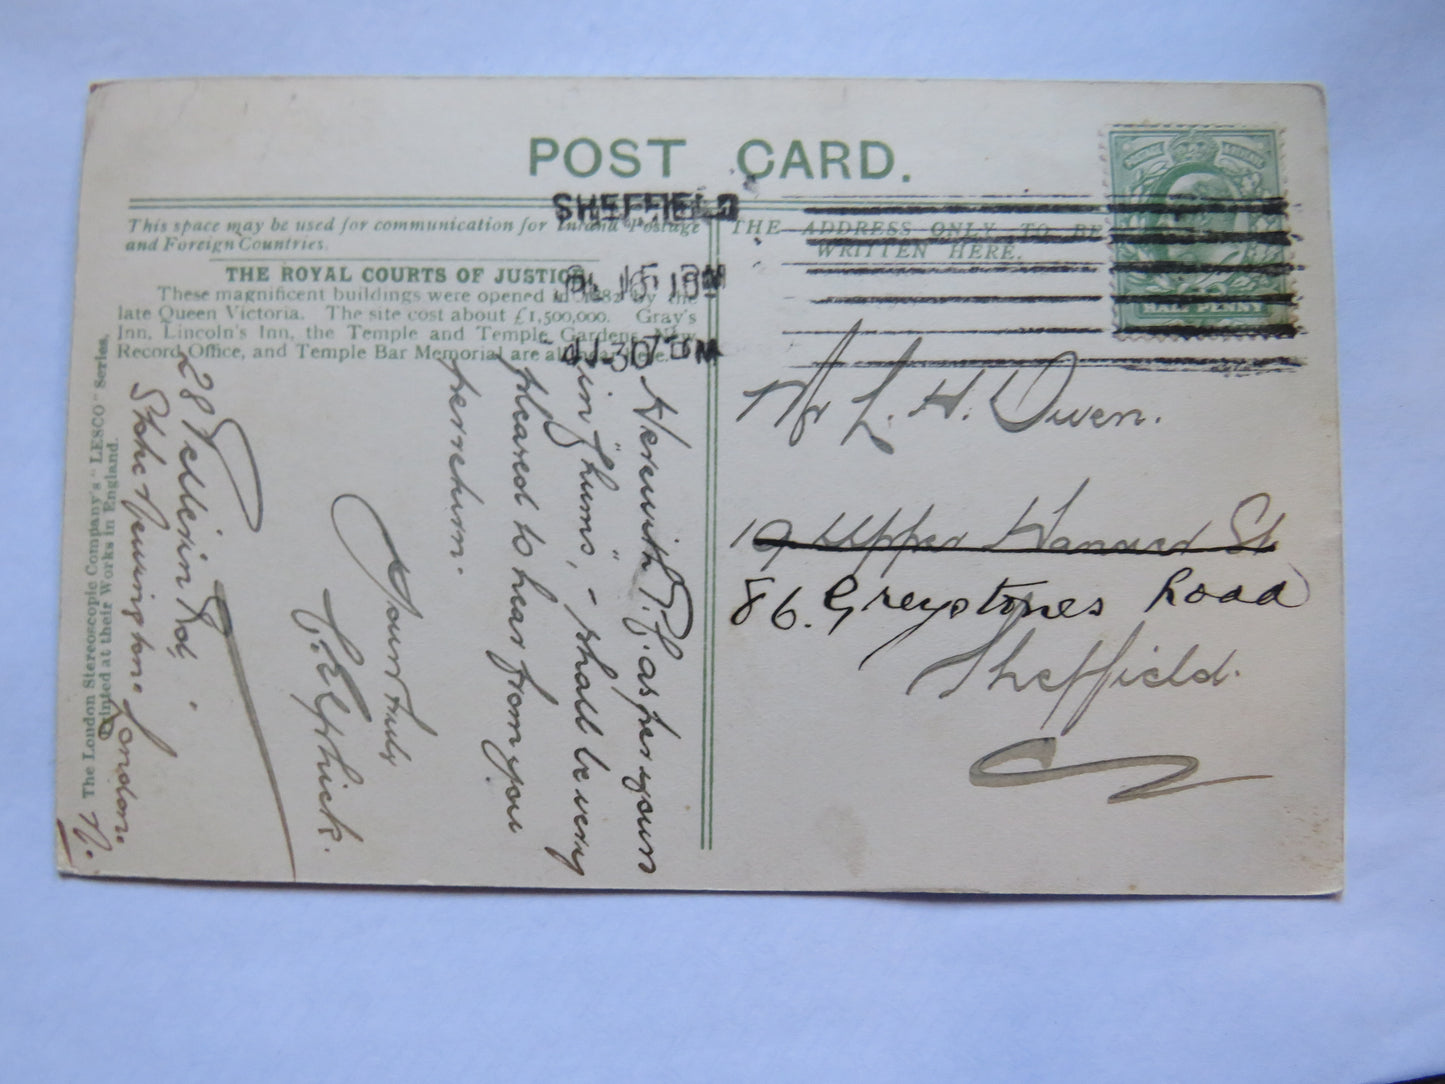 POST CARD.
SHEFFIELD
This space may be used for communication for Inland Postage
and Foreign Countries.
THE ADDRESS ONLY TO BE
WRITTEN HERE.
THE ROYAL COURTS OF JUSTICE.
These magnificent buildings were opened in 1882 by the
late Queen Victoria. The site cost about £1,500,000. Gray's
Inn, Lincoln's Inn, the Temple and Temple Gardens, New
Record Office, and Temple Bar Memorial, are also
HALF PENNY
The London Stereoscopic Company's "LESCO" Series.
Printed at their Works in England.
Herewith P.P.C. as per yours
in "hums", - shall be very
pleased to hear from you
per return.
Yours truly
Elphick.
28 Rd,
Stoke Newington. London.
N.
Mr L. H. Owen.
19 Upper Hanover St
86. Greystones Road
Sheffield.